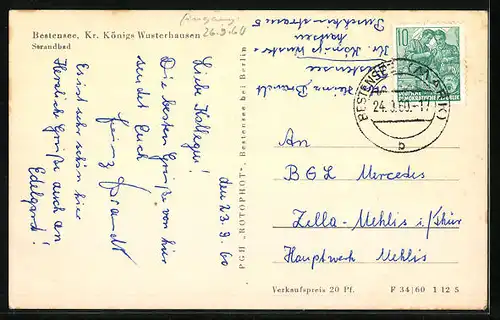 Bestensee, Kr. Königs Wusterhausen
Strandbad
26.9.60
den 23.9.60
Liebe Kollegen!
Die besten Grüße von hier
sendet Euch
Heinz Brandt
Es ist sehr schön hier
Herzliche Grüße auch an
Edelgard!
Heinz Brandt
Bestensee
Kr. Königs Wuster=
hausen
PGH „ROTOPHOT“, Bestensee bei Berlin
10
DEUTSCHE
DEMOKRATISCHE REPUBLIK
BESTENSEE (MARK)
24.9.60.-17
b
An
BGL Mercedes
Zella-Mehlis i/Thür
Hauptwerk Mehlis
Verkaufspreis 20 Pf.
F 34/60 1 12 5